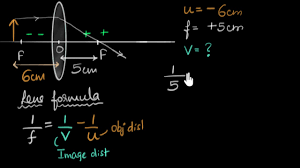 u = - 6cm
f = +5cm
V = ?
F
O
F
6cm
5cm
Lens formula
1/f = 1/V - 1/u
Obj dist
Image dist
1/5